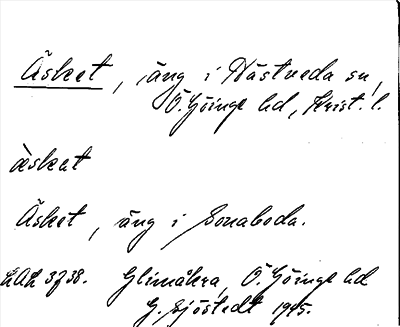 Äsket, äng i Hästveda sn,
Ö. Göinge hd, Krist. l.
æ̀skat
Äsket, äng i Sonaboda.
LAL 3738. Glimåkra, Ö. Göinge hd
G. Sjöstedt 1945.